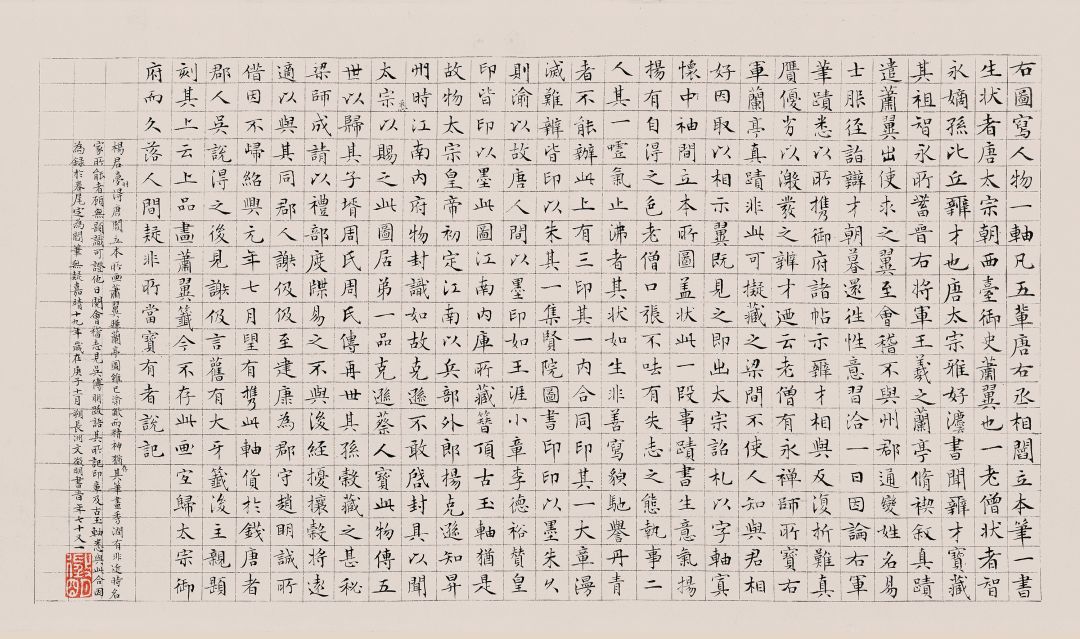 右圖寫人物一軸凡五輩唐右丞相閻立本筆一書
生状者唐太宗朝西臺御史蕭翼也一老僧状者智
永嫡孫比丘辯才也唐太宗雅好灋書聞辯才寶藏
其祖智永所蓄晉右將軍王羲之蘭亭脩禊敘真蹟
遣蕭翼出使求之翼至會稽不與州郡通變姓名易
士服徑詣辯才朝暮還徃性意習洽一日因論右軍
筆蹟悉以所攜御府諸帖示辯才相與反復折難真
贋優劣以激發之辨才迺云老僧有永禅師所寶右
軍蘭亭真蹟非此可擬藏之梁間不使人知與君相
好因取以相示翼既見之即出太宗詔札以字軸寘
懷中袖間立本所圖盖状此一段事蹟書生意氣揚
楊有自得之色老僧口張不呿有失志之態執事二
人其一噓氣止沸者其状如生非善寫貌馳譽丹青
者不能辦此上有三印其一内合同印其一大章漫
滅難辨皆印以朱其一集賢院圖書印印以墨朱久
則渝以故唐人間以墨印如王涯小章李德裕賛皇
印皆印以墨此圖江南内庫所藏簮頂古玉軸猶是
故物太宗皇帝初定江南以兵部外郎揚克遜知昇
州時江南内府物封識如故克遜不敢啟封具以聞
太宗悉以賜之此圖居弟一品克遜蔡人寶此物傳五
世以歸其子壻周氏周氏傳再世其孫糓藏之甚秘
梁師成請以禮部度牒易之不與後經擾攘糓將遠
適以與其同郡人謝伋伋至建康為郡守趙明誠所
借因不歸紹興元年七月望有攜此軸貨於錢唐者
郡人吳說得之後見謝伋言舊有大牙籤後主親題
刻其上云上品畫蕭翼籤今不存此画宜歸太宗御
府而久落人間疑非所當寶有者說記
楊君夢羽得唐閻立本所画蕭翼賺蘭亭圖雖已渝敝而精神猶在其筆畫秀潤有非近時名
家所能者顧無題識可證他日閲會稽志見吳傅朋跋語其所記印章及古玉軸悉與此合因
為錄於卷尾定為閻筆無疑嘉靖十九年歲在庚子十二月朔長洲文徵明書旹年七十又一